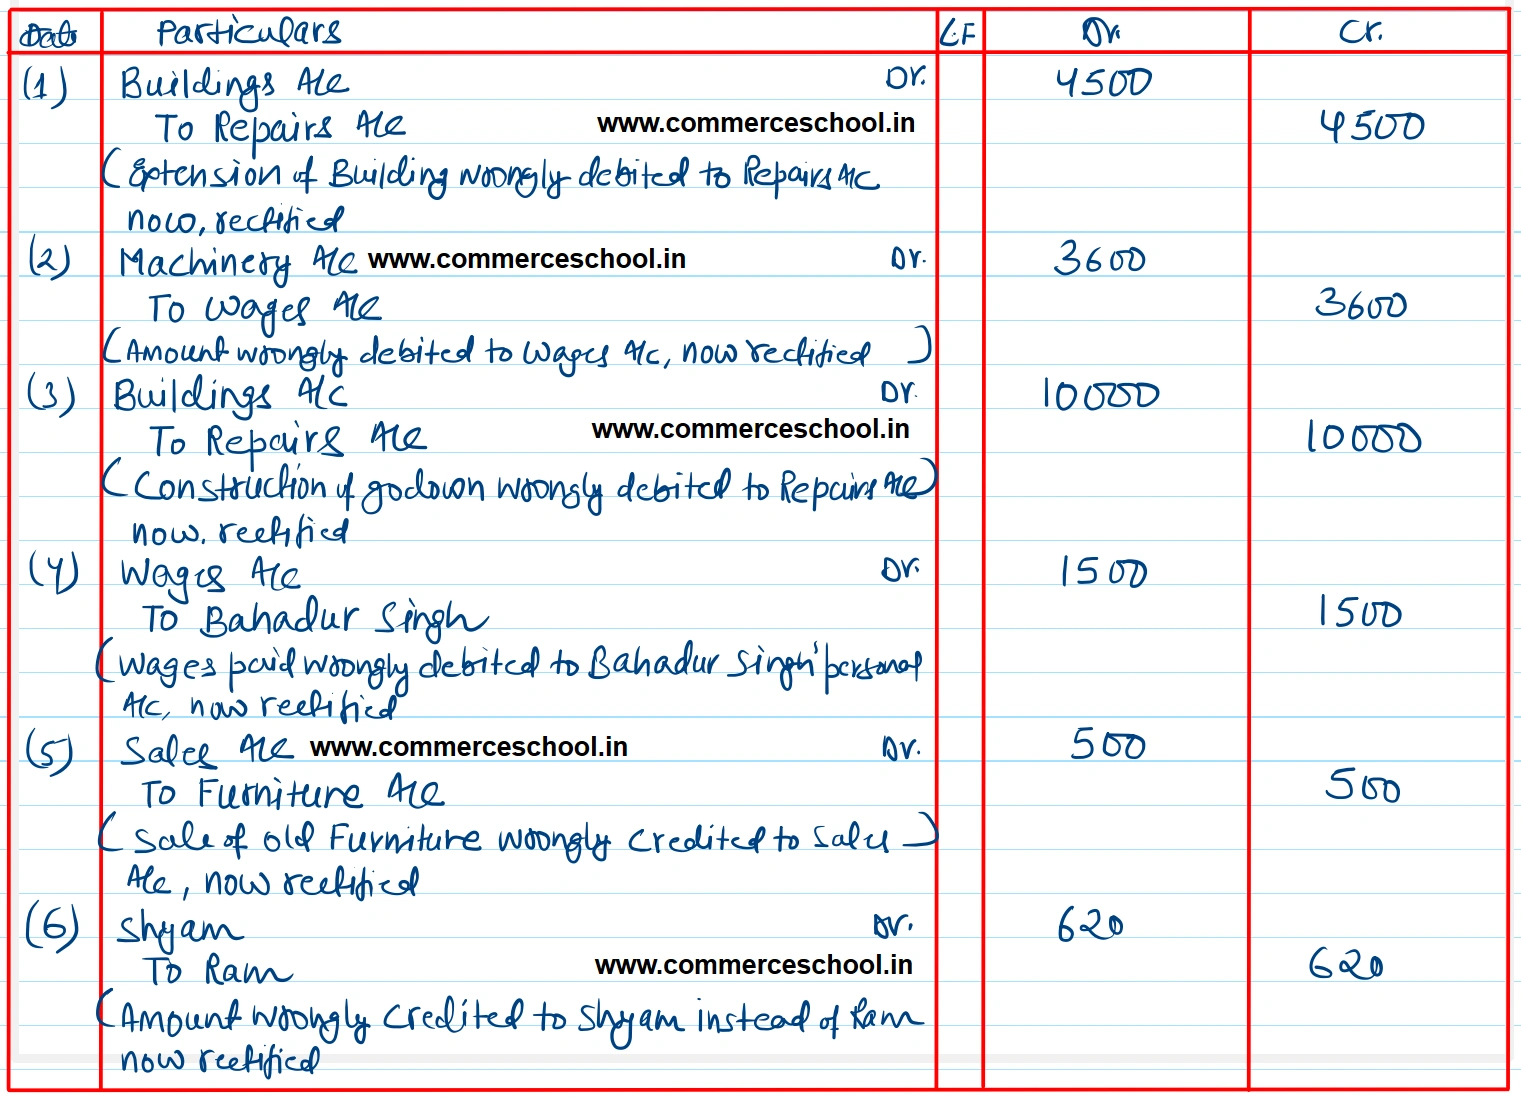 Date Particulars L.F Dr. Cr.
(1) Buildings A/c Dr. 4500
To Repairs A/c www.commerceschool.in 4500
(Extension of Building wrongly debited to Repairs A/c
now, rectified
(2) Machinery A/c www.commerceschool.in Dr. 3600
To Wages A/c 3600
(Amount wrongly debited to Wages A/c, now rectified)
(3) Buildings A/c Dr. 10000
To Repairs A/c www.commerceschool.in 10000
(Construction of godown wrongly debited to Repairs A/c)
now. rectified
(4) Wages A/c Dr. 1500
To Bahadur Singh 1500
(Wages paid wrongly debited to Bahadur Singh' personal
A/c, now rectified
(5) Sales A/c www.commerceschool.in Dr. 500
To Furniture A/c 500
(Sale of old Furniture wrongly credited to Sales)
A/c, now rectified
(6) Shyam Dr. 620
To Ram www.commerceschool.in 620
(Amount wrongly credited to Shyam instead of Ram
now rectified